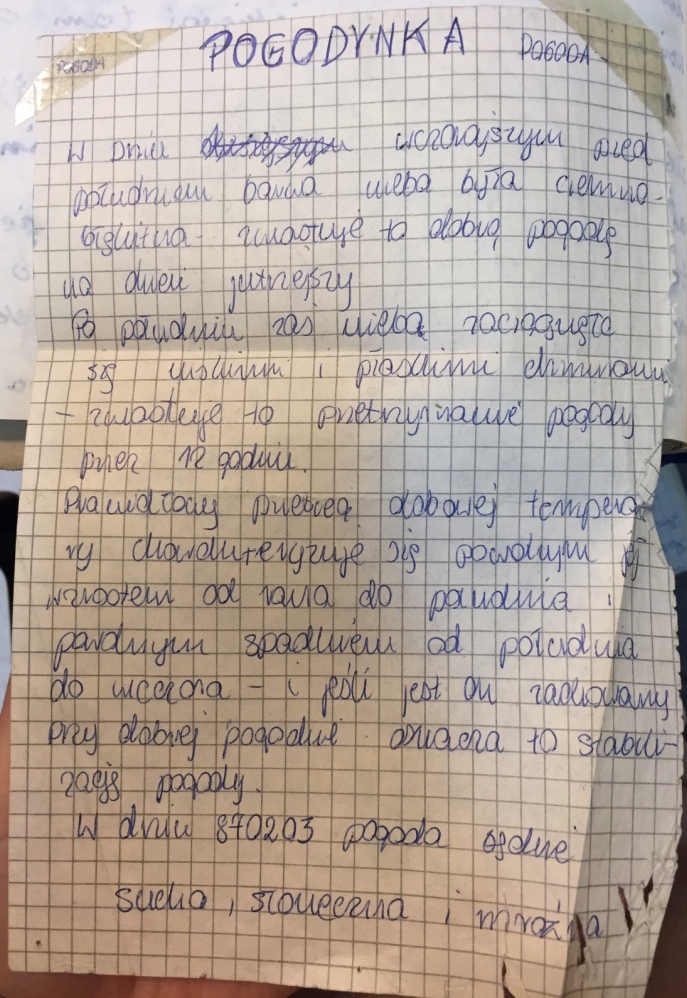 POGODA POGODYNKA POGODA
W Dniu wczorajszym przed
południem barwa nieba była ciemno-
błękitna - zwiastuje to dobrą pogodę
na dzień jutrzejszy
Po południu zaś niebo zaciągnęło
się niskimi i płaskimi chmurami
- zwiastuje to przetrzymanie pogody
przez 12 godzin.
Prawidłowy przebieg dobowej tempera
ry charakteryzuje się powolnym jej
wzrostem od rana do południa i
powolnym spadkiem od południa
do wieczora - i jeśli jest on zachowany
przy dobrej pogodzie oznacza to stabili-
zację pogody.
W dniu 870203 pogoda będzie
sucha, słoneczna i mroźna